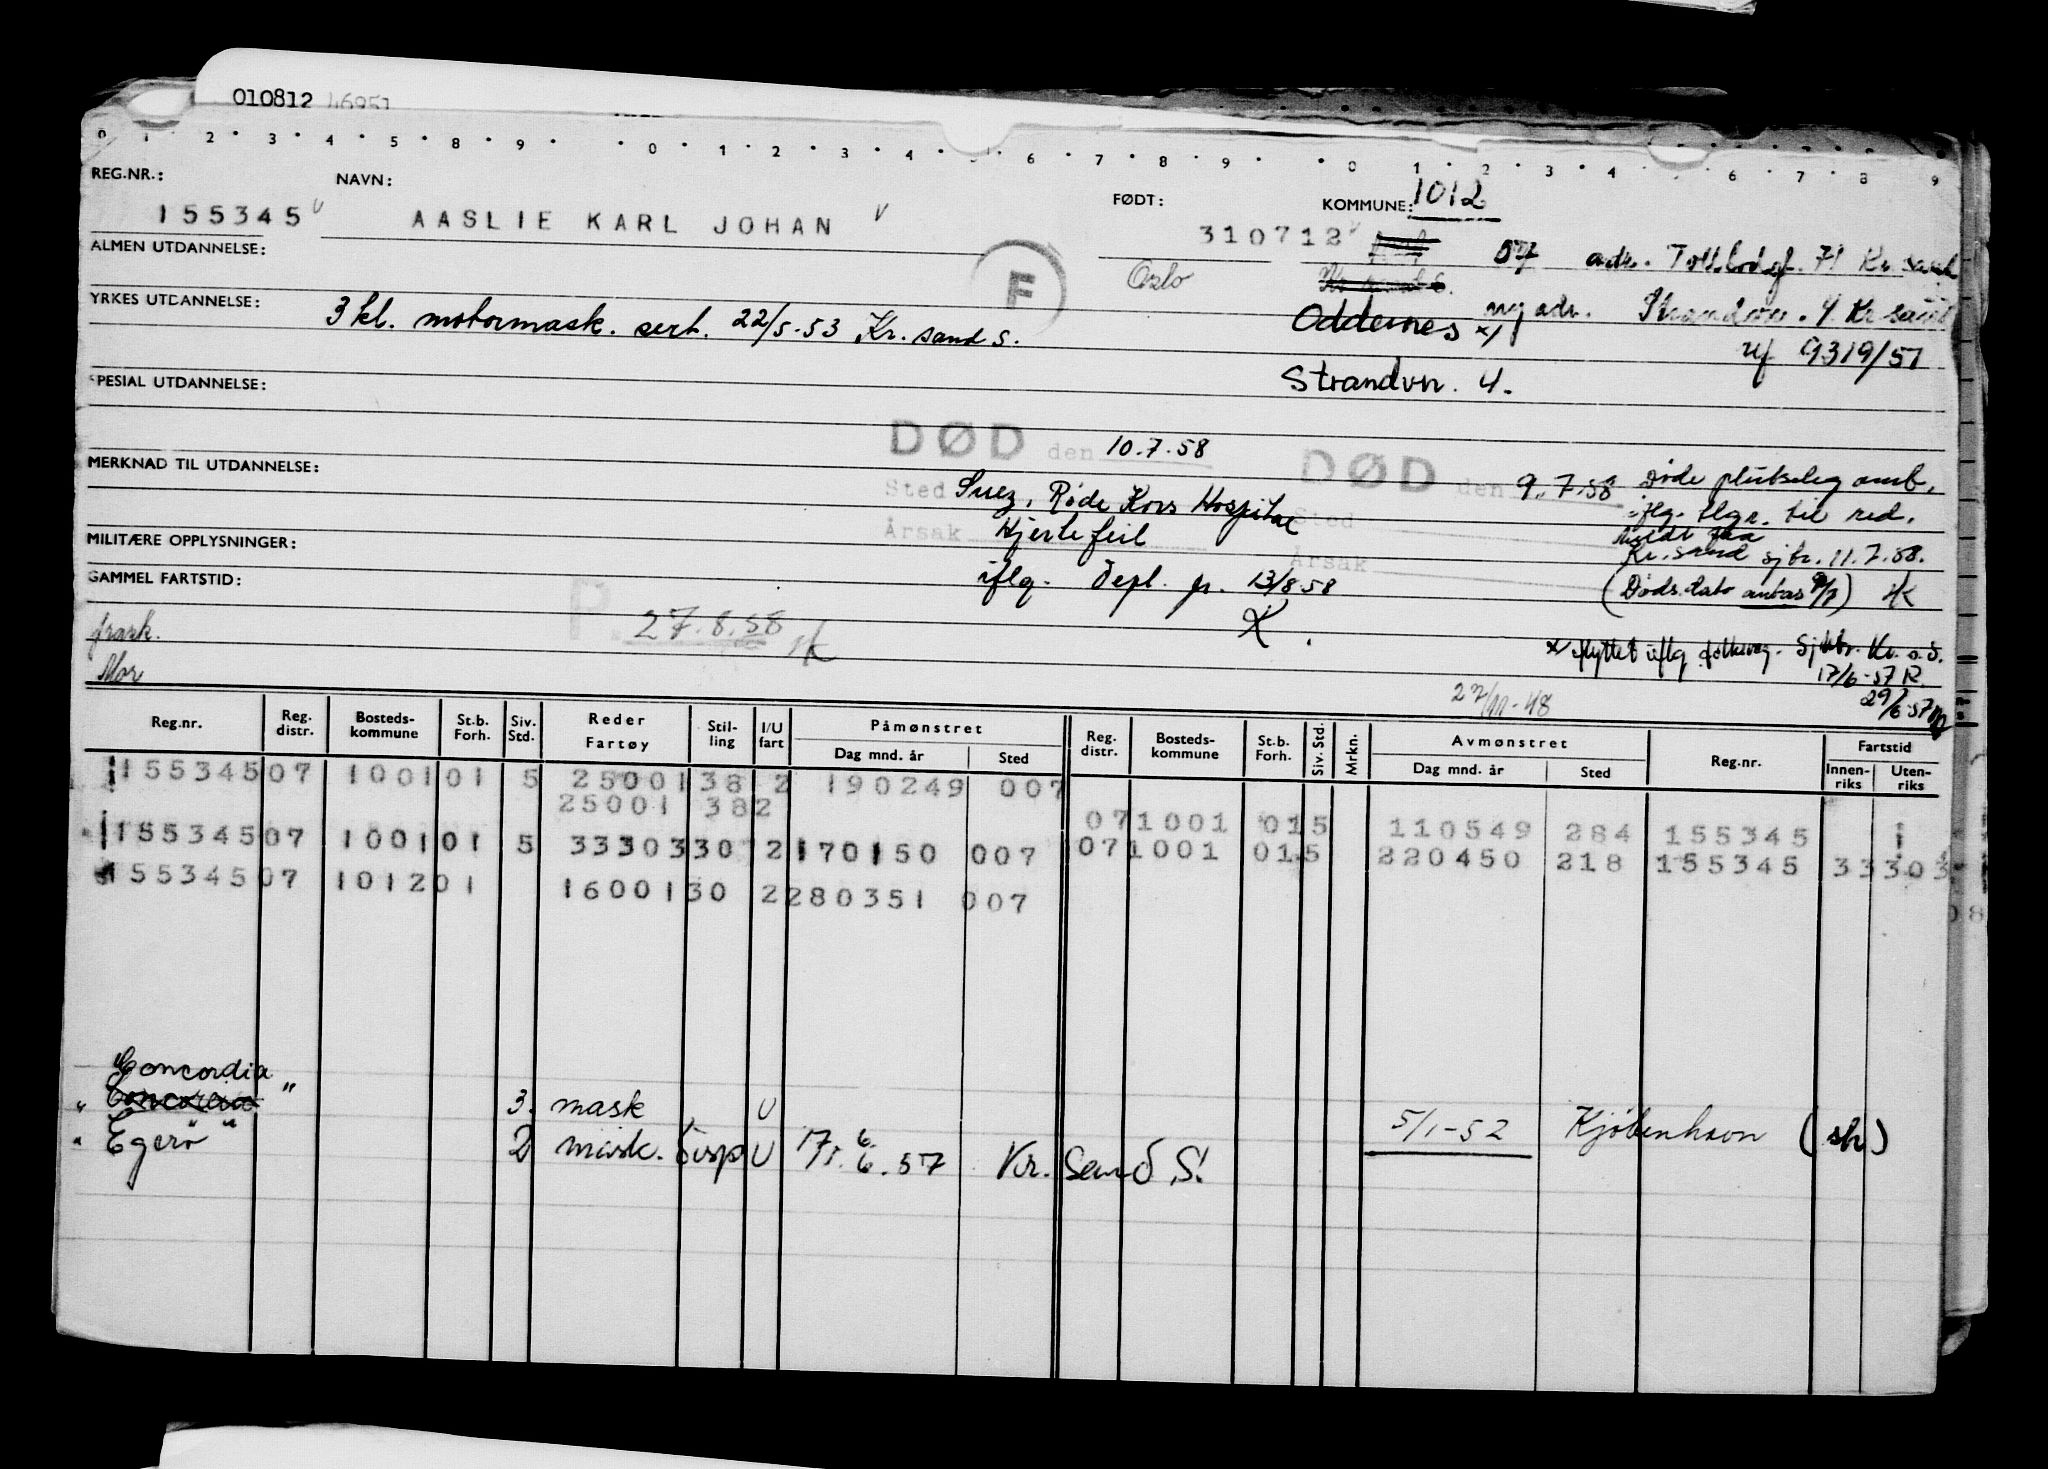 010812 46951
0 1 2 3 4 5 8 9 0 1 2 3 4 6 7 8 9 0 1 2 3 4 6 7 8 9
REG.NR.: NAVN: FØDT: KOMMUNE: 1012
155345 AASLIE KARL JOHAN 310712
ALMEN UTDANNELSE: F Oslo 57 adr. Tollbodgt. 71 Kr sand
YRKES UTDANNELSE: 3 kl. motormask. sert. 22/5-53 Kr. sand S. Oddernes x) ny adr. Strandvn. 4 Kr sand
9319/57
SPESIAL UTDANNELSE: Strandvn. 4.
DØD den 10.7.58
DØD den 9.7.58 Døde plutseleg omb.
MERKNAD TIL UTDANNELSE: Sted Suez, Røde Kors Hospital
Sted iflg. tlgr. til red.
Årsak Hjertefeil
Årsak Kr.sand sjbr. 11.7.58.
MILITÆRE OPPLYSNINGER:
iflg. Depl. pr. 13/8-58
(Døds.dato antas 9/7)
GAMMEL FARTSTID:
P. 27.8.58
x) flyttet iflg folkereg. Kr. s. S.
17/6-57 R
29/6-57
Mor
22/11-48
Reg.nr. Reg. distr. Bosteds-kommune St.b. Forh. Siv. Std. Reder Fartøy Stil-ling I/U fart Påmønstret Dag mnd. år Sted Reg. distr. Bosteds-kommune St.b. Forh. Siv. Std. Mrkn. Avmønstret Dag mnd. år Sted Reg.nr. Fartstid Innen-riks Uten-riks
155345 07 1001 01 5 25001 38 2 190249 007
25001 38 2 07 1001 01 5 110549 284 155345
155345 07 1001 01 5 33303 30 2 170150 007 07 1001 01 5 220450 218 155345 33303
155345 07 1012 01 16001 30 2 280351 007
"Concordia"
3. mask U 5/1-52 Kjøbenhavn (sh)
"Egerø" 2 mask. disp U 17/6.57 Kr. Sand S.